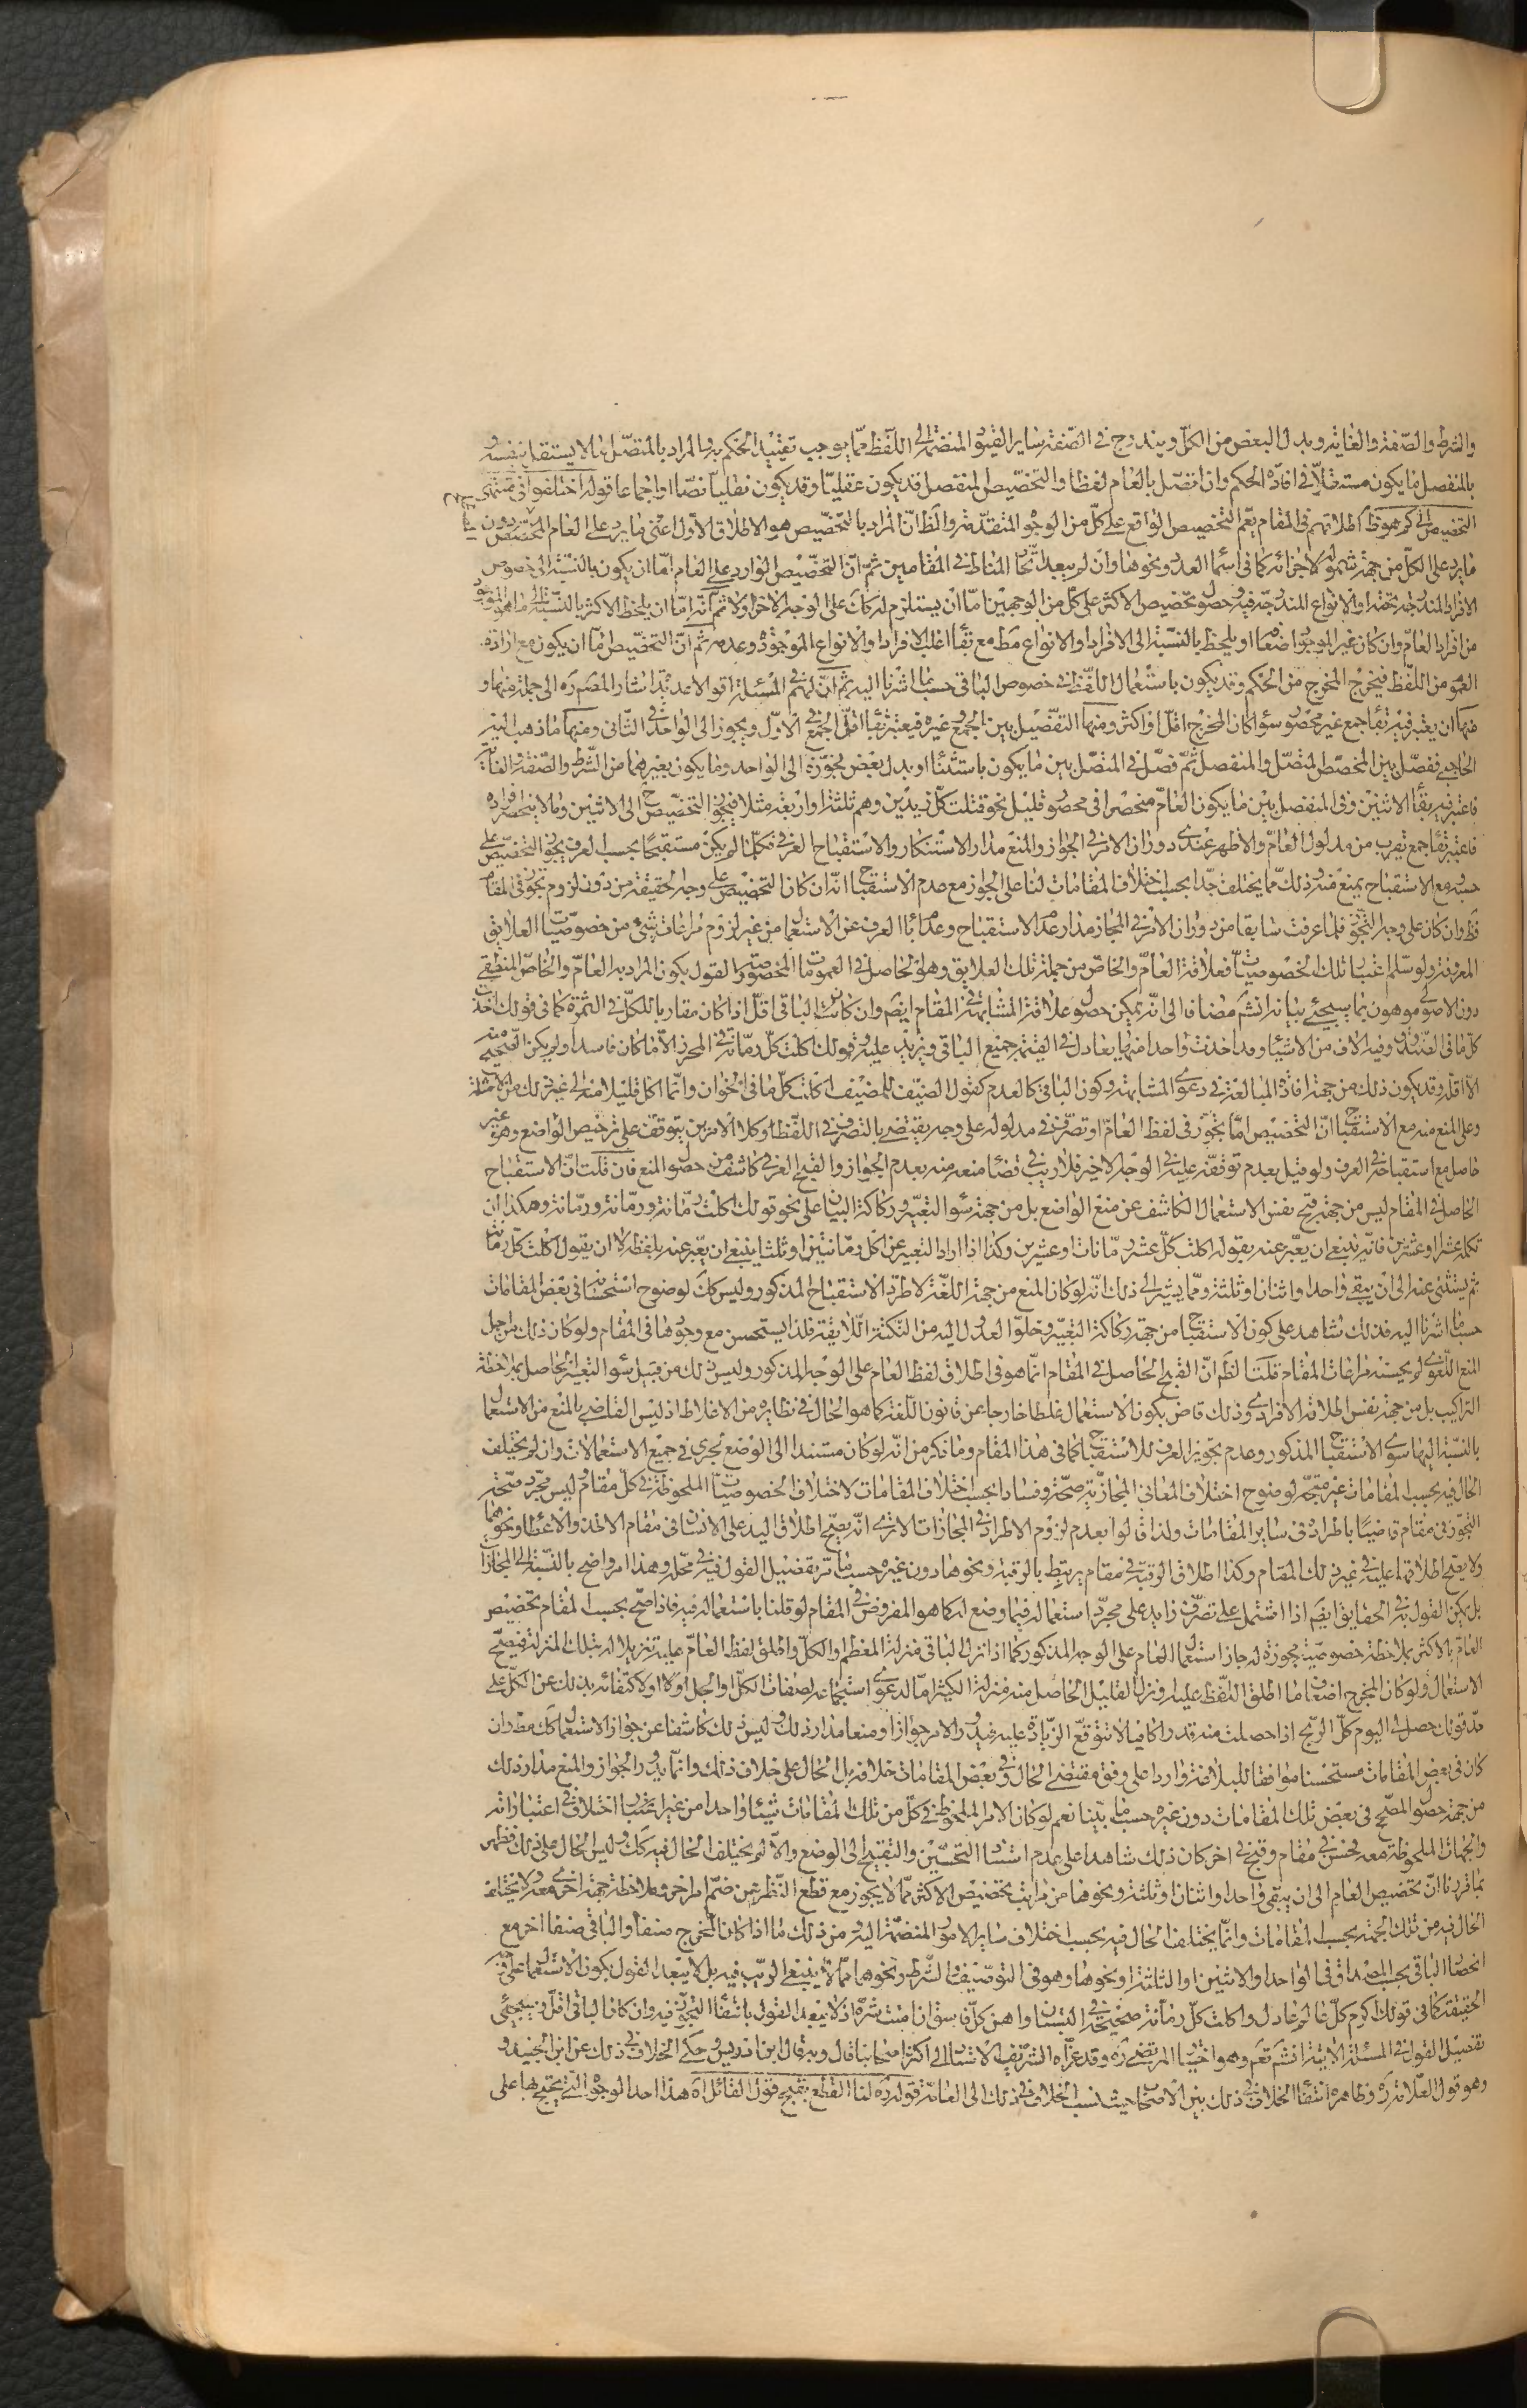 والشرط والصفة والغاية وبدل البعض من الكل ويندرج في الصفة ساير القيود المنضمة الى اللفظ مما يوجب تقييد الحكم به والمراد بالمتصل ما لا يستقل بنفسه و
بالمنفصل ما يكون مستقلا في افادة الحكم وان اتصل بالعام لفظا والتخصيص المنفصل قد يكون عقليا وقد يكون نقليا نصا او اجماعا قوله اختلفوا في منتهى
التخصيص الى كم هو ظ اطلاقهم في المقام يعم التخصيص الواقع على كل من الوجوه المتقدمة والظ ان المراد بالتخصيص هو الاطلاق الاول اعني ما يرد على العام المخصص دون
ما يرد على الكل من جهة شموله لاجزائه كما في اسماء العدد ونحوها وان لم يبعد اتحاد المناط في المقامين ثم ان التخصيص الوارد على العام اما ان يكون بالنسبة الى خصوص
الافراد المندرجة تحته او الانواع المندرجة فيه وحصول تخصيص الاكثر على كل من الوجهين اما ان يستلزم لذلك على الوجه الاخر او لا ثم انه اما ان يلحظ الاكثر بالنسبة الى ما هو الموجود
من افراد العام وان كان غير الموجود اضعافا او يلحظ بالنسبة الى الافراد والانواع مط مع بقاء اغلب الافراد والانواع الموجودة وعدمه ثم ان التخصيص اما ان يكون مع ارادة
العموم من اللفظ فيخرج المخرج من الحكم وقد يكون باستعمال اللفظ في خصوص الباقي حسبما اشرنا اليه ثم ان لهم في المسئلة اقوالا عديدة اشار المص ره الى جملة منها و
منها ان يعتبر فيه بقاء جمع غير محصور سواء كان المخرج اقل او اكثر ومنها التفصيل بين الجمع وغيره فيعتبر بقاء اقل الجمع في الاول ويجوز الى الواحد في الثاني ومنها ما ذهب اليه
الحاجبي ففصل بين المخصص المتصل والمنفصل ثم فصل في المتصل بين ما يكون باستثناء او بدل بعض فجوزه الى الواحد وما يكون بغيرهما من الشرط والصفة والغاية
فاعتبر فيه بقاء الاثنين وفي المنفصل بين ما يكون العام منحصرا في محصور قليل نحو قتلت كل زيدين وهم ثلثة او اربعة مثلا فيجوز التخصيص ح الى الاثنين وما لا ينحصر افراده
فاعتبر بقاء جمع يقرب من مدلول العام والاظهر عندي دوران الامر في الجواز والمنع مدار الاستنكار والاستقباح العرفي فكلما لم يكن مستقبحا بحسب العرف يجوز التخصيص على
حسبه ومع الاستقباح يمنع منه وذلك مما يختلف جدا بحسب اختلاف المقامات لنا على الجواز مع عدم الاستقباح انه ان كان التخصيص على وجه الحقيقة من دون لزوم تجوز في المقام
فظ وان كان على وجه التجوز فلما عرفت سابقا من دوران الامر في المجاز مدار عدم الاستقباح وعدم اباء العرف عن الاستعمال من غير لزوم مراعات شيء من خصوصيات العلايق
المعروفة ولو سلم اعتبار تلك الخصوصيات فعلاقة العام والخاص من جملة تلك العلايق وهو الحاصل في العمومات المخصوصة كما القول بكون المراد به العام والخاص المنطقي
دون الاصولي موهون بما سيجئ بيانه انشم مضافا الى انه يمكن حصول علاقة المشابهة في المقام ايض وان كان الباقي اقل اذا كان مقاربا للكل في الثمرة كما في قولك اخذت
كل ما في الصندوق وفيه الاف من الاشياء وقد اخذت واحدا منها يعادل في القيمة جميع الباقي ويزيد عليه وقولك اكلت كل رمانة في المحرز الا ما كان فاسدا ولم يكن الصحيح منه
الا اقله وقد يكون ذلك من جهة افادة المبالغة في دعوى المشابهة وكون الباقي كالعدم كقول الضيف للمضيف اكلت كل ما في الخوان وانما اكل قليلا منه الى غير ذلك من الامثلة
وعلى المنع منه مع الاستقباح ان التخصيص اما تجوز في لفظ العام او تصرف في مدلوله على وجه يقتضي بالتصرف في اللفظ وكلا الامرين يتوقف على ترخيص الواضع وهو غير
حاصل مع استقباحه في العرف ولو قيل بعدم توقفه عليه في الوجه الاخير فلا ريب في قضاء منعه منه بعدم الجواز والقبح العرفي كاشف من حصول المنع فان قلت ان الاستقباح
الحاصل في المقام ليس من جهة قبح نفس الاستعمال الكاشف عن منع الواضع بل من جهة سوء التعبير وركاكة البيان على نحو قولك اكلت رمانة ورمانة ورمانة وهكذا الى ان
تكمله عشرا او عشرين فانه ينبغي ان يعبر عنه بقوله اكلت كل عشر رمانات او عشرين وكذا اذا اراد التعبير عن اكل رمانتين او ثلثا ينبغي ان يعبر عنه بلفظه لا ان يقول اكلت كل رمانة
ثم يستثنى عنه الى ان يبقى واحدا واثنان او ثلثة ومما يشير الى ذلك انه لو كان المنع من جهة اللغة لاطرد الاستقباح المذكور وليس كك لوضوح استحسانه في بعض المقامات
حسبما اشرنا اليه فذلك شاهد على كون الاستقباح من جهة ركاكة التعبير وخلو العدول اليه من النكتة اللايقة فلذا يستحسن مع وجودها في المقام ولو كان ذلك من اجل
المنع اللغوي لم يحسنه مراعات المقام قلت الظ ان القبح الحاصل في المقام انما هو في اطلاق لفظ العام على الوجه المذكور وليس ذلك من قبيل سوء التعبير الحاصل بملاحظة
التراكيب بل من جهة نفس اطلاقه الافرادي وذلك قاض بكون الاستعمال غلطا خارجا عن قانون اللغة كما هو الحال في نظايره من الاغلاط اذ ليس القاضي بالمنع من الاستعمال
بالنسبة اليها سوى الاستقباح المذكور وعدم تجويز العرف للاستقباح كما في هذا المقام وما ذكر من انه لو كان مستندا الى الوضع لجرى في جميع الاستعمالات وان لم يختلف
الحال فيه بحسب المقامات غير متجه لوضوح اختلاف المعاني المجازية صحة وفسادا بحسب اختلاف المقامات لاختلاف الخصوصيات الملحوظة في كل مقام وليس مجرد صحة
التجوز في مقام قاضيا باطراده في ساير المقامات ولذا قالوا بعدم لزوم الاطراد في المجازات الا ترى انه يصح اطلاق اليد على الانسان في مقام الاخذ والاعطاء ونحوهما
ولا يصح اطلاقها عليه في غير ذلك المقام وكذا اطلاق الرقبة في مقام يرتبط بالرقية ونحوها دون غيره حسبما مر تفصيل القول فيه في محله وهذا امر واضح بالنسبة الى المجازات
بل يمكن القول به في الحقايق ايض اذا اشتمل على تصرف زايد على مجرد استعماله فيما وضع له كما هو المفروض في المقام لو قلنا باستعماله فيه فاذا صح بحسب المقام تخصيص
العام بالاكثر بملاحظة خصوصية مجوزة له جاز استعمال العام على الوجه المذكور كما اذا نزل الباقي منزلة المعظم والكل واطلق لفظ العام عليه تنزيلا له بتلك المنزلة فيصح
الاستعمال ولو كان المخرج اضعاف ما اطلق اللفظ عليه وننزل القليل الحاصل منه منزلة الكثير اما لدعوى استجماعه لصفات الكل او الجل او لا او لاكتفائه بذلك عن الكل على
حد قولك حصل لي اليوم كل الربح اذا حصلت منه قدرا كافيا لا تتوقع الزيادة عليه فيدور الامر جوازا ومنعا مدار ذلك وليس ذلك كاشفا عن جواز الاستعمال كك مط وان
كان في بعض المقامات مستحسنا موافقا للبلاغة واردا على وفق مقتضى الحال وفي بعض المقامات خلافه بل الحال على خلاف ذلك وانما يدور الجواز والمنع مدار ذلك
من جهة حصول المصحح في بعض تلك المقامات دون غيره حسبما بينا نعم لو كان الامر الملحوظ في كل من تلك المقامات شيئا واحدا من غير اختلاف في اعتباراته
والجهات الملحوظة معه فحسن في مقام وقبح في اخر كان ذلك شاهدا على عدم استناد التحسين والتقبيح الى الوضع والا لم يختلف الحال فيه كك وليس الحال على ذلك فظهر
بما قررنا ان تخصيص العام الى ان يبقى واحدا واثنان وثلثة ونحوها من مراتب تخصيص الاكثر مما لا يجوز مع قطع النظر عن ضم امر اخر وملاحظة جهة اخرى معه ولا يختلف
الحال فيه من تلك الجهة بحسب المقامات وانما يختلف الحال فيه بحسب اختلاف ساير الامور المنضمة اليه ومن ذلك ما اذا كان المخرج صنفا والباقي صنفا اخر مع
انحصار الباقي بحسب المصداق في الواحد والاثنين او الثلثة ونحوها وهو في التوصيف والشرط ونحوهما مما لا ينبغي الريب فيه بل لا يبعد القول بكون الاستعمال على وجه
الحقيقة كما في قولك اكرم كل عالم عادل واكلت كل رمانة صحيحة في البستان واهن كل فاسق ان امنت شره اذ لا يبعد القول بانتفاء التجوز فيه وان كان الباقي اقل وسيجئ
تفصيل القول في المسئلة الاتية انشم قوله نعم وهو اختيار المرتضى ره وقد عزاه الشريف الاستاد الى اكثر اصحابنا قال وبه قال ابن ادريس وحكى الخلاف في ذلك عن ابن الجنيد و
وهو قول العلامة ره وظاهره انتفاء الخلاف في ذلك بين الاصحاب حيث نسب الخلاف في ذلك الى العامة قوله ره لنا القطع بقبح قول القائل اه هذا احد الوجوه التي يحتج بها على